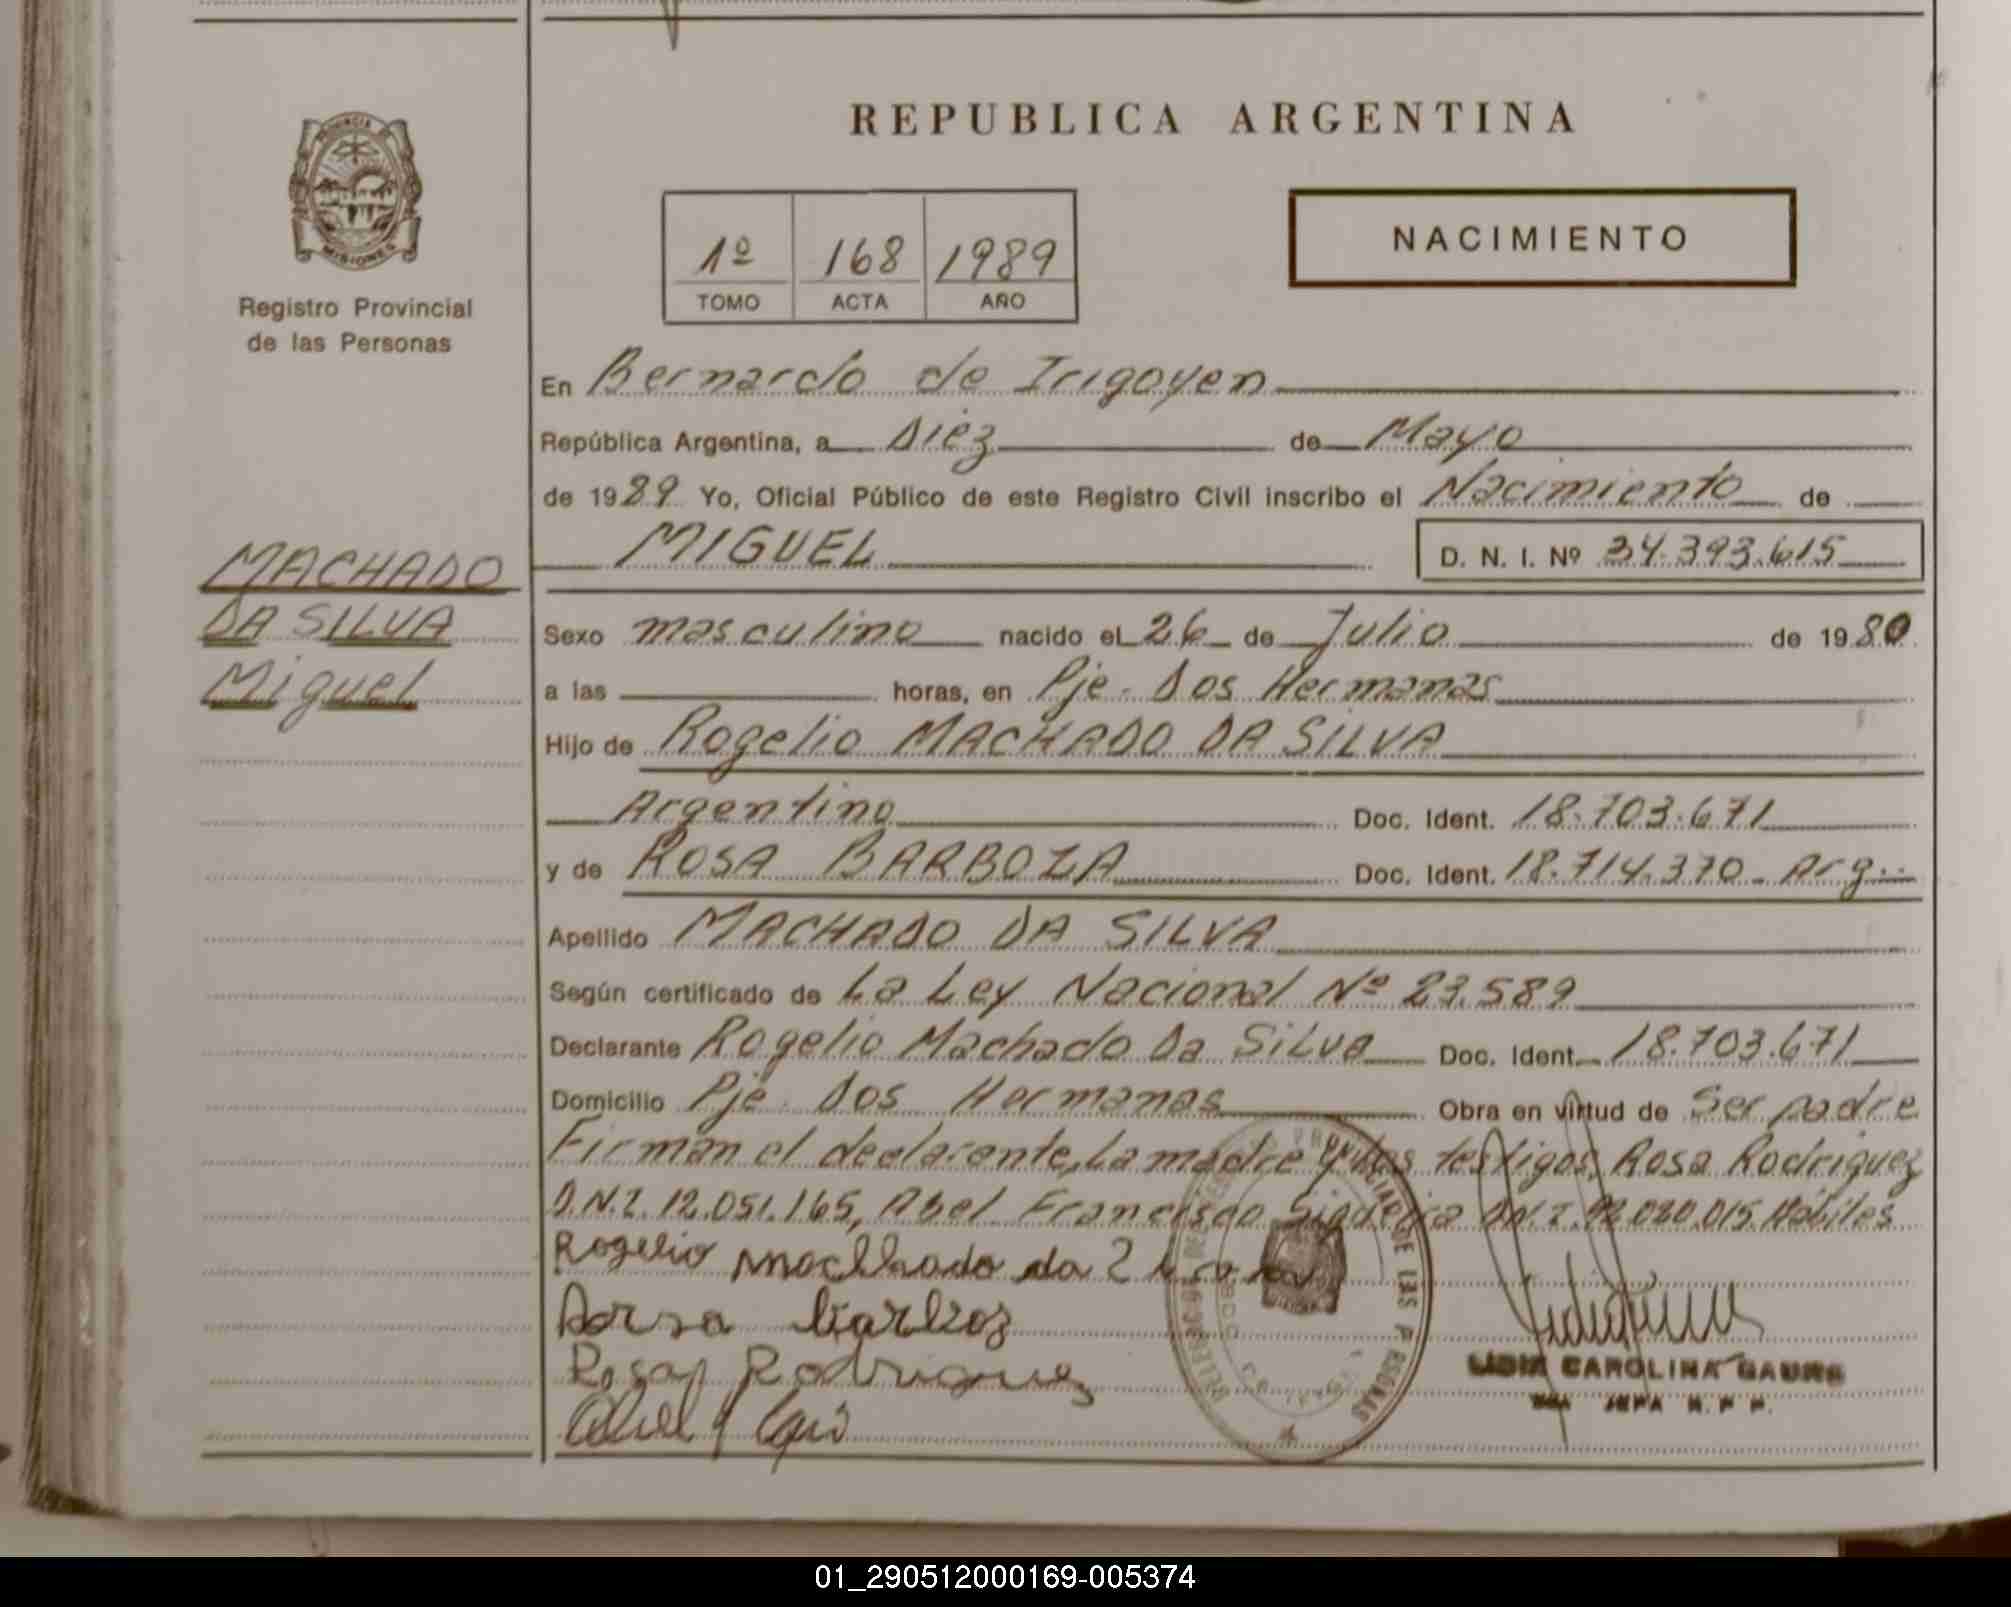 REPUBLICA ARGENTINA
PROVINCIA DE
MISIONES
Registro Provincial
de las Personas
1º 168 1989
TOMO ACTA AÑO
NACIMIENTO
En Bernardo de Irigoyen
República Argentina, a Diéz de Mayo
de 1989 Yo, Oficial Público de este Registro Civil inscribo el Nacimiento de
MIGUEL D. N. I. Nº 34.393.615
MACHADO
DA SILVA
Miguel
Sexo masculino nacido el 26 de Julio de 1980
a las horas, en Pje. Dos Hermanas
Hijo de Rogelio MACHADO DA SILVA
Argentino Doc. Ident. 18.703.671
y de ROSA BARBOZA Doc. Ident. 18.714.370 - Arg..
Apellido MACHADO DA SILVA
Según certificado de La Ley Nacional Nº 23.589
Declarante Rogelio Machado Da Silva Doc. Ident. 18.703.671
Domicilio Pje. Dos Hermanas Obra en virtud de Ser padre
Firman el declarante, La madre y los testigos, Rosa Rodriguez
D.N.I. 12.051.165, Abel Francisco D.N.I. 92.020.015 Hábiles
Rogelio da
Rosa Rodriguez
PROVINCIAL DE LAS PERSONAS
LIDIA CAROLINA
JEFA R. P. P.
01_290512000169-005374